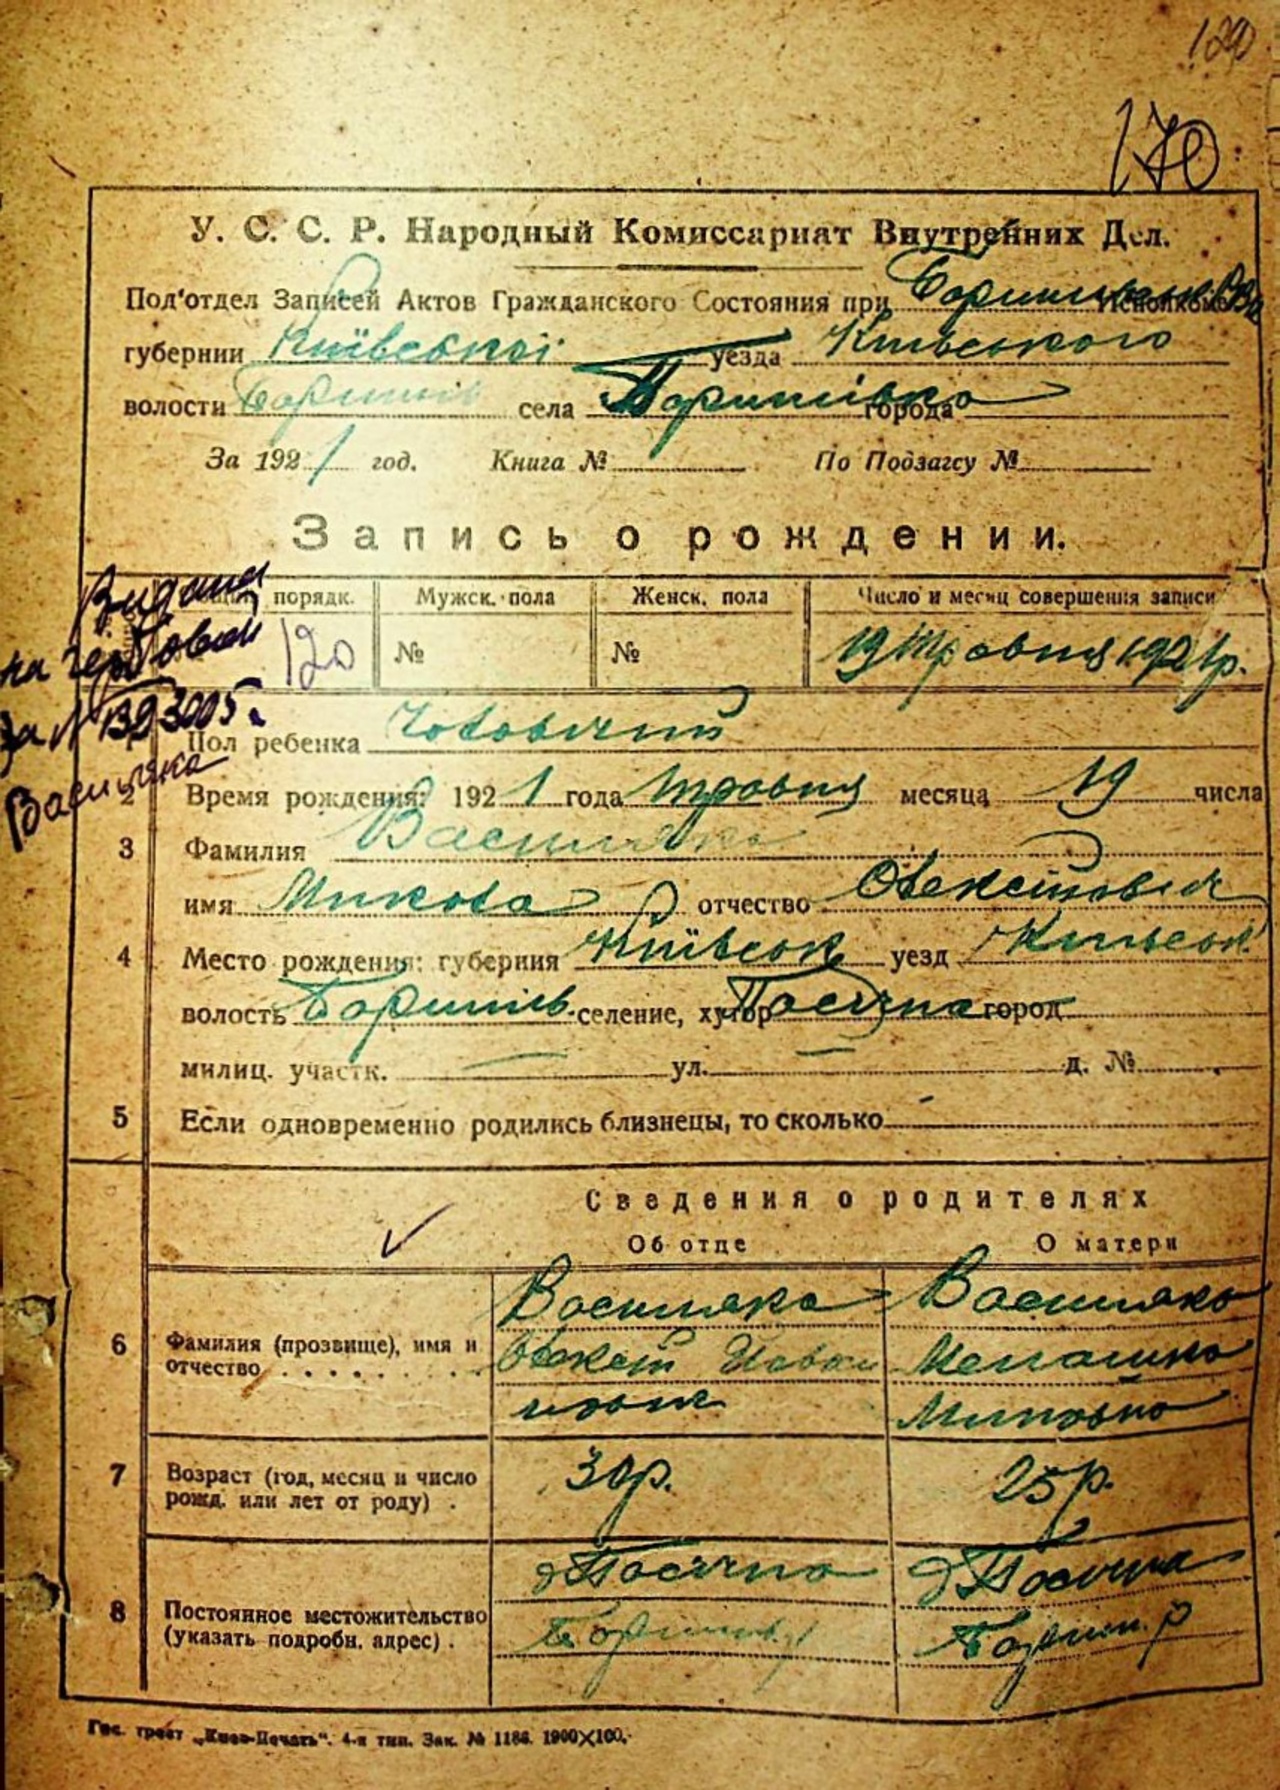 120
170
У. С. С. Р. Народный Комиссариат Внутренних Дел.
Под'отдел Записей Актов Гражданского Состояния при Исполкоме
губернии Київської уезда Київського
волости Баришів села Баришівка города
За 1921 год. Книга № По Подзагсу №
Запись о рождении.
порядк. Мужск. пола Женск. пола Число и месяц совершения записи
120 № № 19 травня 1921 р.
Видана
на гербовій
за №
Василяка
1 Пол ребенка Чоловічий
2 Время рождения: 1921 года травня месяца 19 числа
3 Фамилия Василяка
имя Микола отчество Олексійович
4 Место рождения: губерния Київськ уезд Київськ
волость Баришів. селение, хутор Пасічна город
милиц. участк. — ул. — д. №
5 Если одновременно родились близнецы, то сколько -
Сведения о родителях
Об отце О матери
6 Фамилия (прозвище), имя и отчество
Василяка Василяка
Олексій
7 Возраст (год, месяц и число рожд. или лет от роду) .
30 р. 25 р.
8 Постоянное местожительство (указать подробн. адрес) .
д Пасічна д Пасічна
Гос. трест „Киев-Печать". 4-я тип. Зак. № 1186. 1900×100.